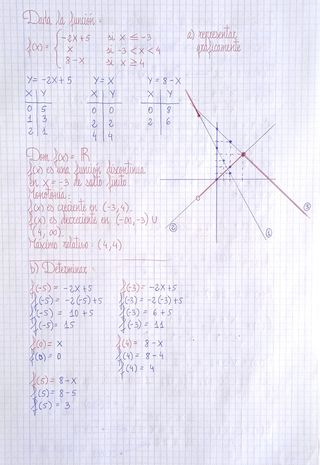 Dada la función:
f(x) = { -2x+5 si x ≤ -3
x si -3 < x < 4
8-x si x ≥ 4
a) representar gráficamente
Y = -2x+5 Y = X Y = 8-X
X Y X Y X Y
0 5 0 0 0 8
1 3 2 2 2 6
2 1 4 4
Dom f(x) = ℝ
f(x) es una función discontinua
en x = -3 de salto finito.
Monotonía:
f(x) es creciente en (-3,4).
f(x) es decreciente en (-∞,-3) U
(4, ∞).
Máximo relativo: (4,4)
b) Determinar:
f(-5) = -2x+5 f(-3) = -2x+5
f(-5) = -2(-5)+5 f(-3) = -2(-3)+5
f(-5) = 10+5 f(-3) = 6+5
f(-5) = 15 f(-3) = 11
f(0) = x f(4) = 8-x
f(0) = 0 f(4) = 8-4
f(4) = 4
f(5) = 8-x
f(5) = 8-5
f(5) = 3